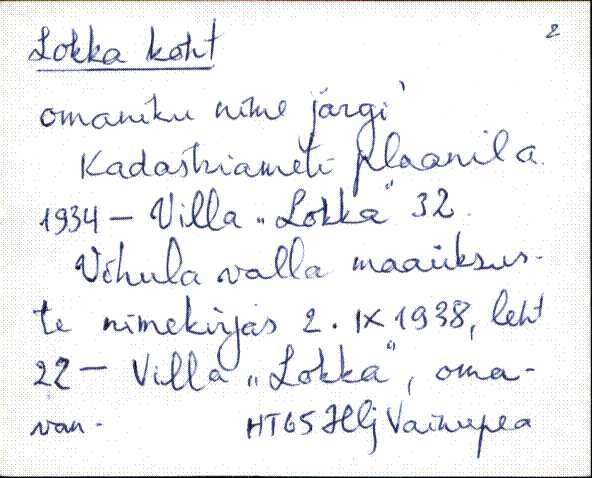 2
Lokka koht
omaniku nime järgi
Kadastriameti plaanil a.
1934 – Villa „Lokka“ 32.
Vihula valla maaüksus-
te nimekirjas 2. IX 1938, leht
22 – Villa „Lokka“, oma-
van-
HT65 Hlj Vainupea